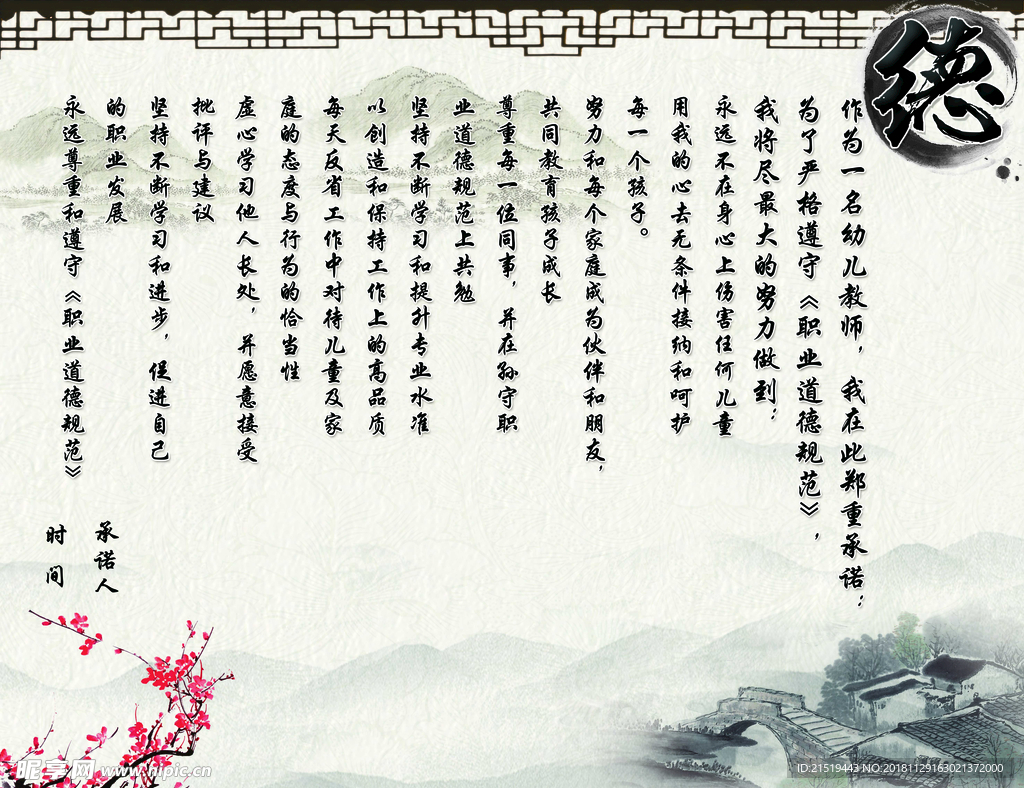 德
作为一名幼儿教师，我在此郑重承诺：
为了严格遵守《职业道德规范》，
我将尽最大的努力做到：
永远不在身心上伤害任何儿童
用我的心去无条件接纳和呵护
每一个孩子。
努力和每个家庭成为伙伴和朋友，
共同教育孩子成长
尊重每一位同事，并在孙守职
业道德规范上共勉
坚持不断学习和提升专业水准
以创造和保持工作上的高品质
每天反省工作中对待儿童及家
庭的态度与行为的恰当性
虚心学习他人长处，并愿意接受
批评与建议
坚持不断学习和进步，促进自己
的职业发展
永远尊重和遵守《职业道德规范》
承诺人
时间
昵享网 www.nipic.cn
ID:21519443 NO:20181129163021372000